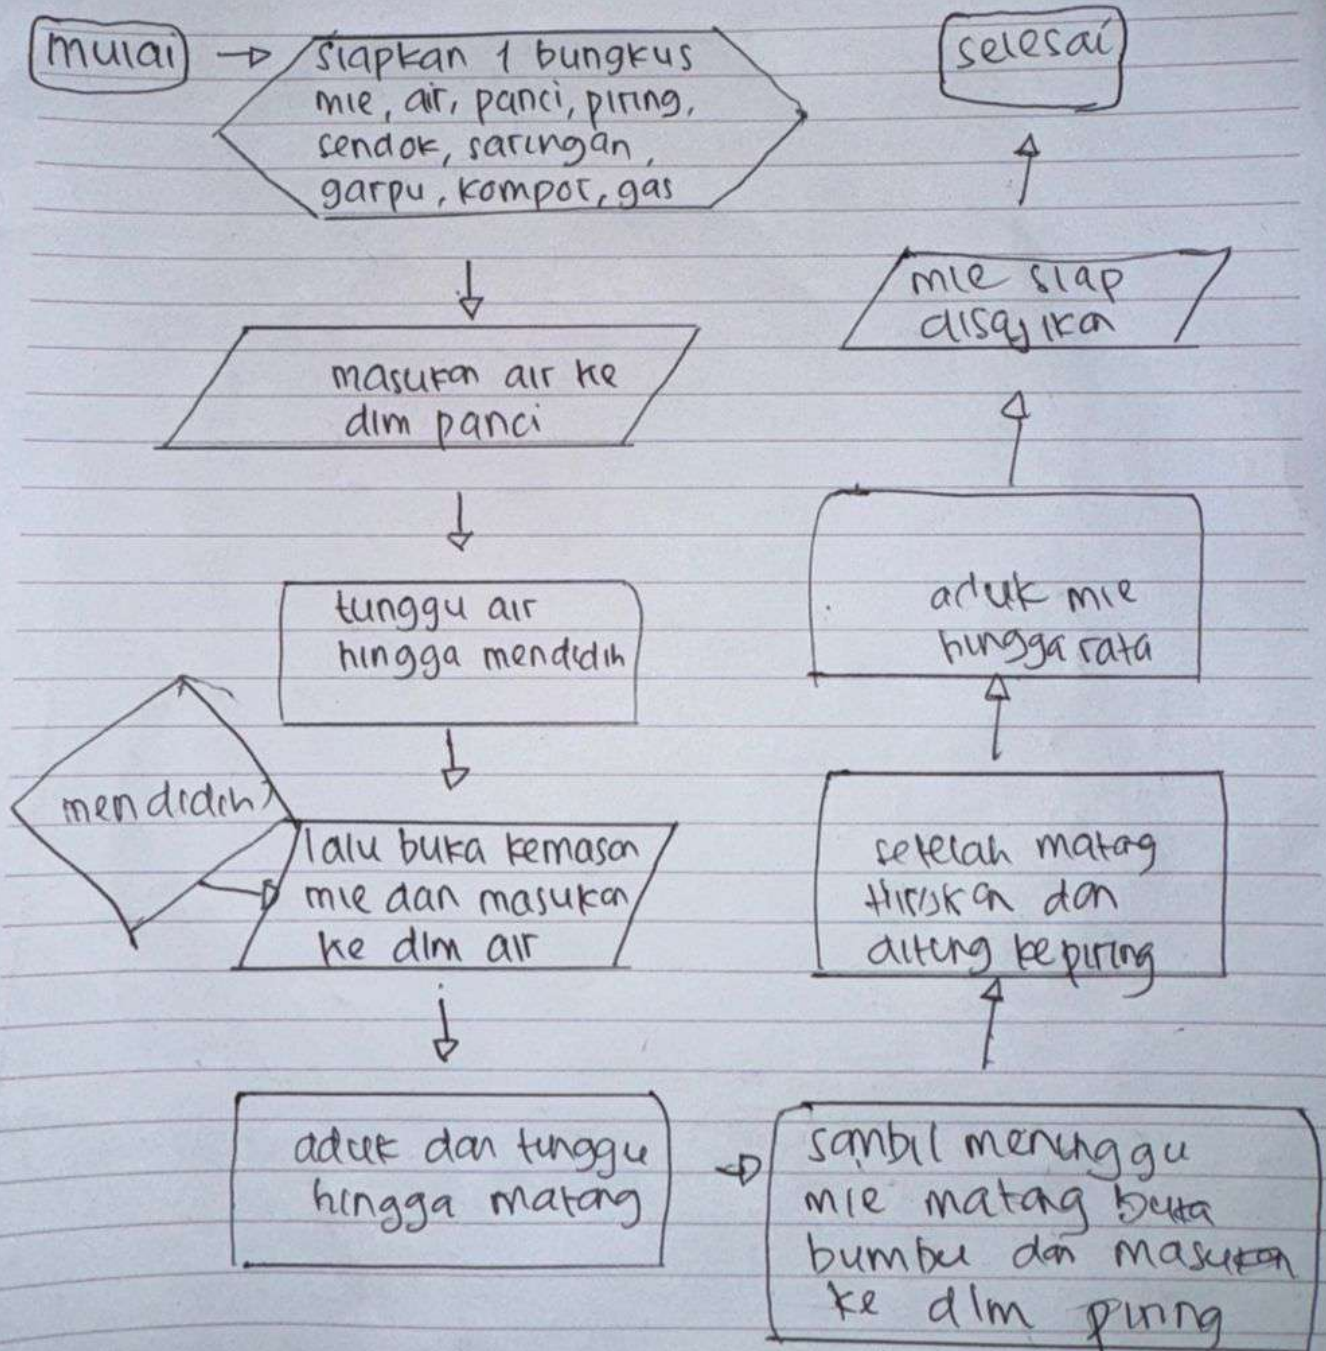 mulai
siapkan 1 bungkus
mie, air, panci, piring,
sendok, saringan,
garpu, kompor, gas
masukan air ke
dlm panci
tunggu air
hingga mendidih
mendidih
lalu buka kemasan
mie dan masukan
ke dlm air
aduk dan tunggu
hingga matang
sambil menunggu
mie matang buka
bumbu dan masukan
ke dlm piring
setelah matang
tiriskan dan
kepiring
aduk mie
hingga rata
mie siap
disajikan
selesai